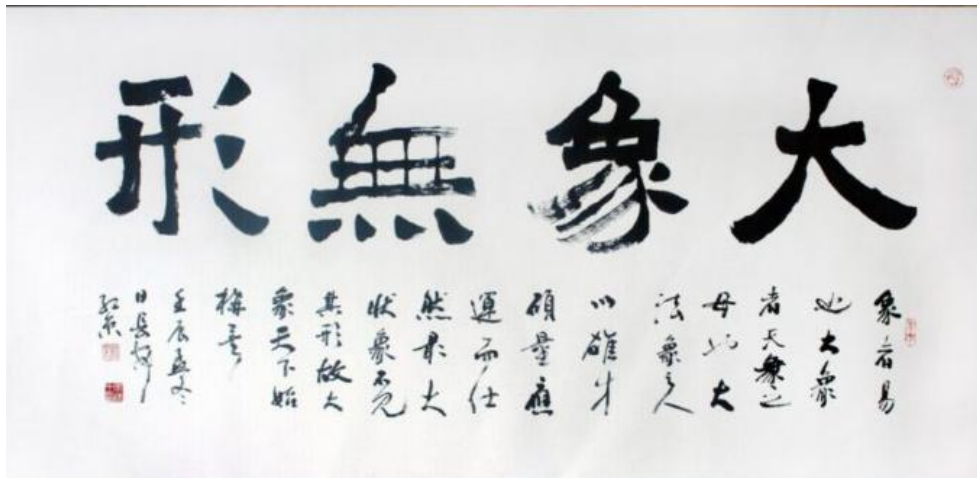 大象無形
象者易
也大象
者天象之
母也大
法象之人
以雄才
碩量應
運而仕
然最大
狀象不見
其形故大
象天下始
梅雲
壬辰孟冬
日
於京